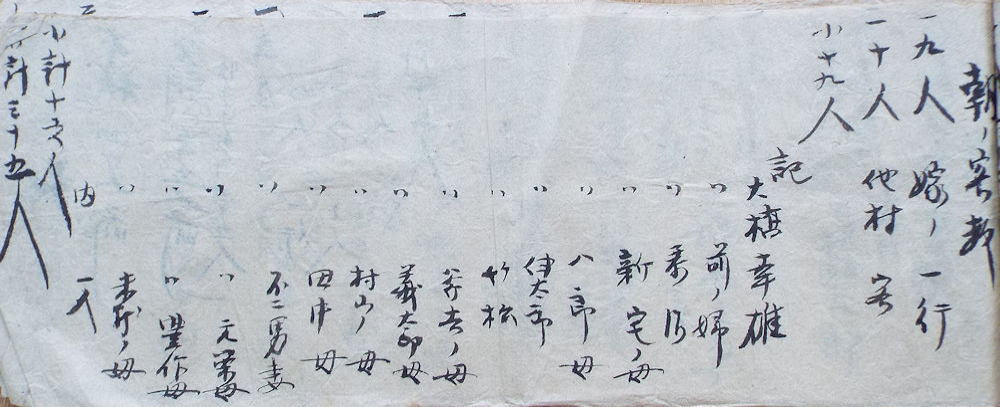 朝ノ客数
一九人 嫁ノ一行
一十人 他村 客
小十九人
記
大槙幸雄
〃 前ノ婦
〃
〃 新宅ノ母
〃 八郎 母
〃 伊太郎
〃 竹松
〃 ノ母
〃 義太郎母
〃 村山ノ母
〃 田中 母
〃 不二男妻
〃 〃 元栄母
〃 〃 豊作母
〃 ノ母
内 一人
小計十六人
計三十五人